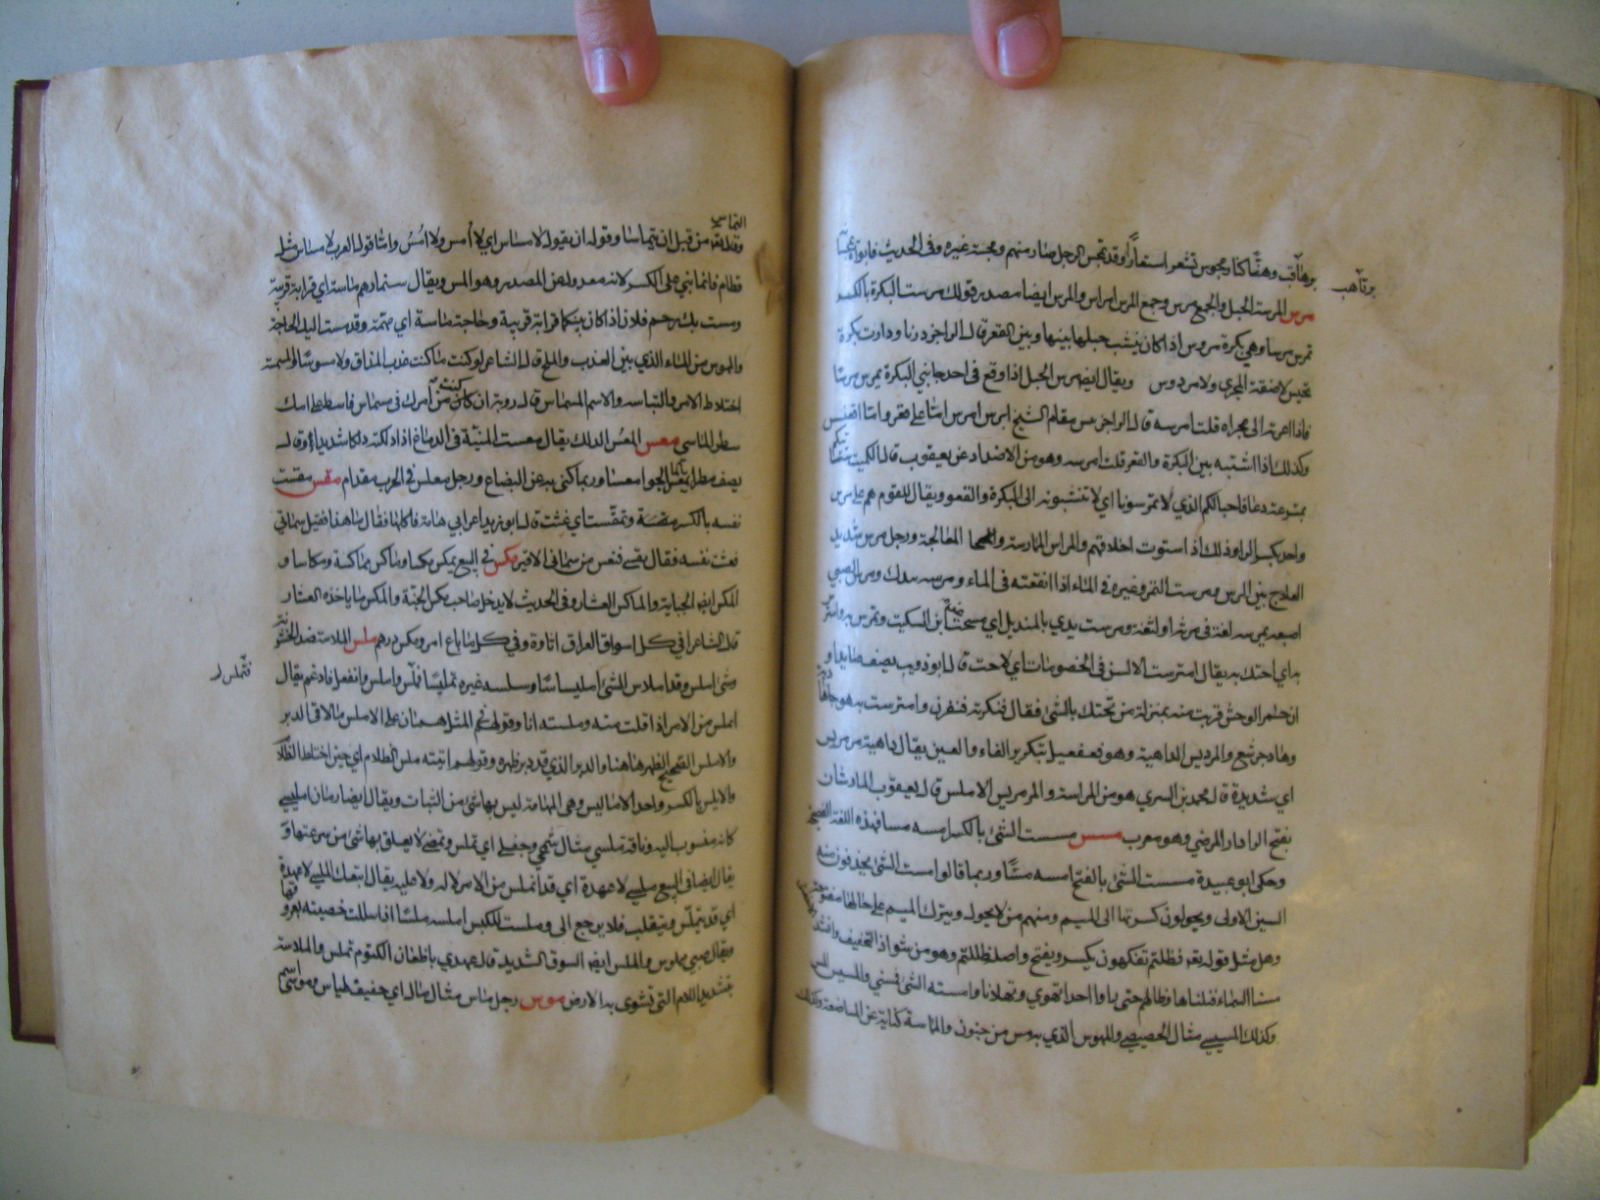 برهافت وهنا كنار مجوس تستعر استعارا وقد تمجس الرجل صار منهم ومجسه غيره وفي الحديث فابواه يمجسانه
مرس المرسة الحبل والجمع مرس وجمع المرس امراس والمرس ايضا مصدر قولك مرست البكرة بالكسر
تمرس مرسا وهي بكرة مروس اذا كان ينشب حبلها بينها وبين القعو قال الراجز درنا ودارت بكرة
نخيس لا ضيقة المجرى ولا مردوس ويقال ايضا مرس الحبل اذا وقع في احد جانبي البكرة يمرس مرسا
فاذا اعدته الى مجراه قلت امرسته قال الراجز بئس مقام الشيخ امرس امرس اما على قعو واما اقعنسس
وكذلك اذا انشبته بين البكرة والقعو قلت امرسته وهو من الاضداد عن يعقوب قال الكميت
بمترعة دعاقا حبالكم الذي لا تمرسونا اي لا تنشبونه الى البكرة والقعو ويقال للقوم هم على مرس
واحد بكسر الراء وذلك اذا استوت اخلاقهم والمراس الممارسة والمعالجة ورجل مرس شديد
العلاج بين المرس ومرست التمر وغيره في الماء اذا انقعته في الماء ومرسته بيدك ومرس الصبي
اصبعه يمرسه لغة في مرثه او لثغة ومرست يدي بالمنديل اي مسحت ابن السكيت وتمرس به وامترس
به اي احتك به يقال امترست الالسن في الخصومات اي لاجت قال ابو ذويب يصف صايدا و
ان حمر الوحش قربت منه بمنزلة من يحتك بالشئ فقال فنكرنه فنفرن وامترست به هوجاء
وهاد جرشع والمرمريس الداهية وهو فعفعيل بتكرير الفاء والعين يقال داهية مرمريس
اي شديدة قال محمد بن السري هو من المراسة والمرمريس الاملس قال يعقوب المارستان
بفتح الراء دار المرضي وهو معرب مسس مسست الشئ بالكسر امسه مسا فهذه اللغة الفصيحة
وحكى ابو عبيدة مسست الشئ بالفتح امسه مسا وربما قالوا مست الشئ يحذفون منه
السين الاولى ويحولون كسرتها الى الميم ومنهم من لا يحول ويترك الميم على حالها مفتوحة
وهو مثل قوله تعه فظلتم تفكهون يكسر ويفتح واصله ظللتم وهو من شواذ التخفيف وانشد
مسنا السماء فنلناها وطالهم حتى راوا احدا تهوي وثهلانا وامسسته الشئ فمسه والمسيس المس
وكذلك المسيسى مثال الخصيصى والممسوس الذي به مس من جنون والمماسة كناية عن المباضعة وكذلك
برتاهب
التماس
وقال تعه من قبل ان يتماسا وقوله ان يقول لا مساس اي لا امس ولا امس واما قول العرب لا مساس مثل
قطام فانما بني على الكسر لانه معدول عن المصدر وهو المس ويقال بينهما رحم ماسة اي قرابة قريبة
ومست بك رحم فلان اذا كان بينكما قرابة قريبة وحاجة ماسة اي مهمة وقد مست اليك الحاجة
والمسوس من الماء الذي بين العذب والملح قال الشاعر لو كنت ماء كنت عذب المذاق ولا مسوسا والمسمسة
اختلاط الامر والتباسه والاسم المسماس قال روبة ان كنت من امرك في مسماس فاسط على امك
سطو الماسي معس المعس الدلك يقال معست المنيئة في الدباغ اذا دلكته دلكا شديدا وقال
يصف مطرا يمعس بالماء الجواء معسا وربما كني به عن البضاع ورجل معاس في الحرب مقدام مقس مقست
نفسه بالكسر مقسة وتمقست اي غثت قال ابو زيد صاد اعرابي هامة فاكلها فقال ما هذا فقيل سماني
فغثت نفسه فقال نفسي تمقس من سماني الاقبر مكس في البيع يمكس مكسا وماكس مماكسة ومكاسا و
المكس ايضا الجباية والماكس العشار وفي الحديث لا يدخل صاحب مكس الجنة والمكس ما ياخذه العشار
قال الشاعر افي كل اسواق العراق اتاوة وفي كل ما باع امرؤ مكس درهم ملس الملاسة ضد الخشونة
وشئ املس وقد املاس الشئ امليساسا وملسه غيره تمليسا فتملس واملس وانفعل فادغم يقال
املس من الامر اذا افلت منه وملسته انا وقولهم في المثل هان على الاملس ما لاقى الدبر
والاملس الصحيح الظهر هاهنا والدبر الذي قد دبر ظهره وقولهم اتيته ملس الظلام اي حين اختلط الظلام
والامليس بالكسر واحد الاماليس وهي المهامة ليس بها شئ من النبات ويقال ايضا رمان امليسي
كانه منسوب اليه وناقة ملسى مثال شمجى وجفلى اي تملس وتمضي لا يعلق بها شئ من سرعتها و
يقال ايضا في البيع ملسى لا عهدة اي قد انملس من الامر لا له ولا عليه يقال ابيعك الملسى لا عهدة
اي قد يتملس ويتفلت فلا يرجع الي وملست الكبش املسه ملسا اذا سللت خصيته بعروقها
ويقال صبي مملوس والملس ايضا السوق الشديد قال عهدي باظعان الكتوم تملس والملاسة
بتشديد اللام التي تسوى به الارض موس رجل ماس مثال مال اي خفيف طياش وموسى اسم
فتملس